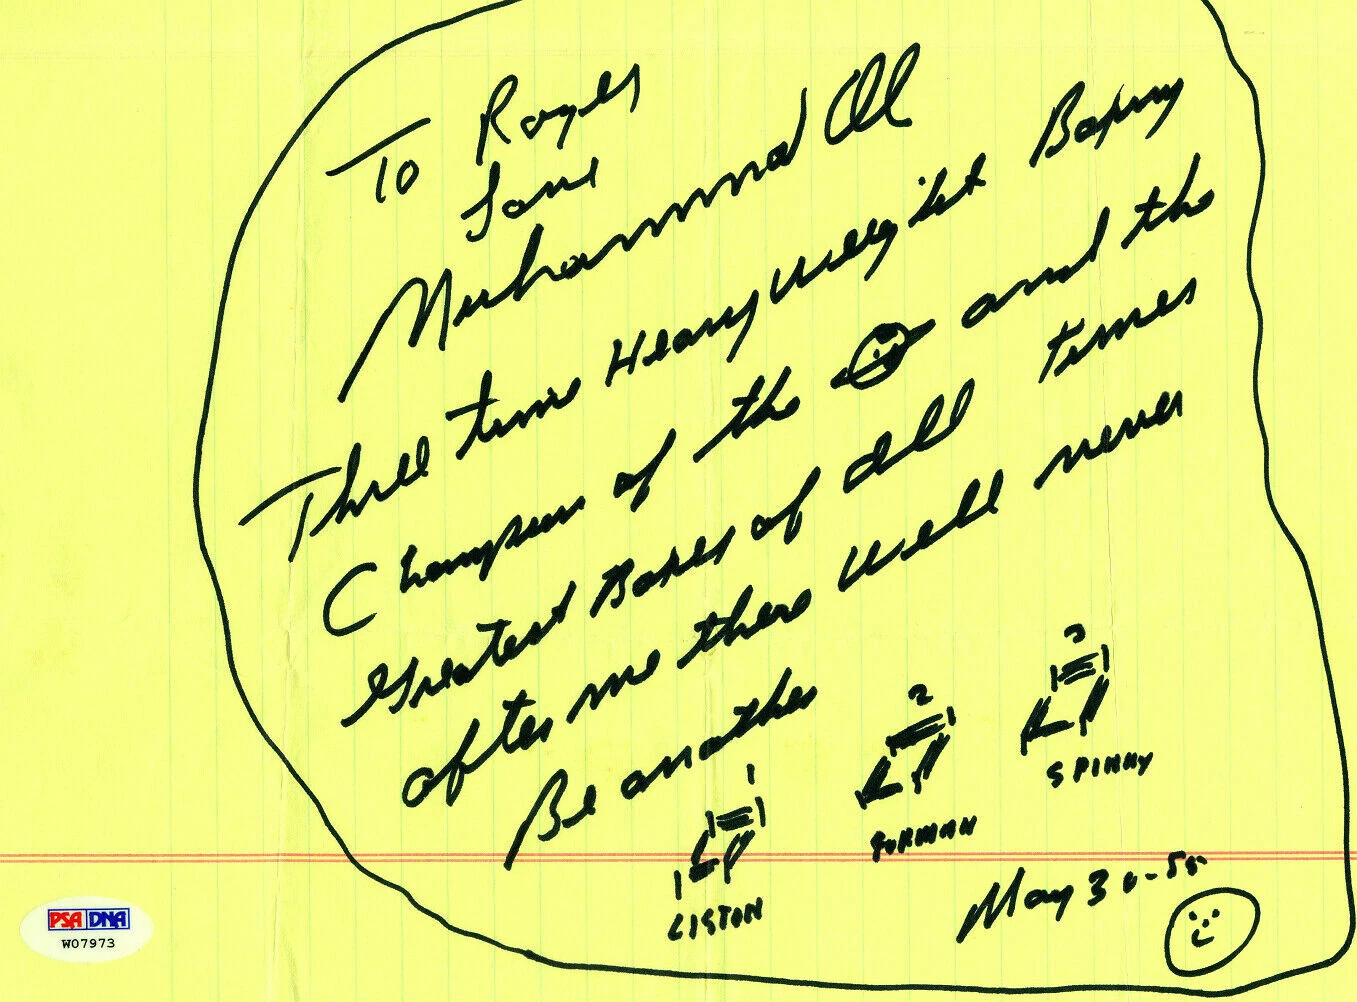 To Roger
Love
Muhammad Ali
Three time Heavyweight Boxing
Champion of the and the
Greatest Boxer of all times
after me there will never
Be another
1
LISTON
2
FORMAN
3
SPINKY
May 30-
PSA DNA
W07973